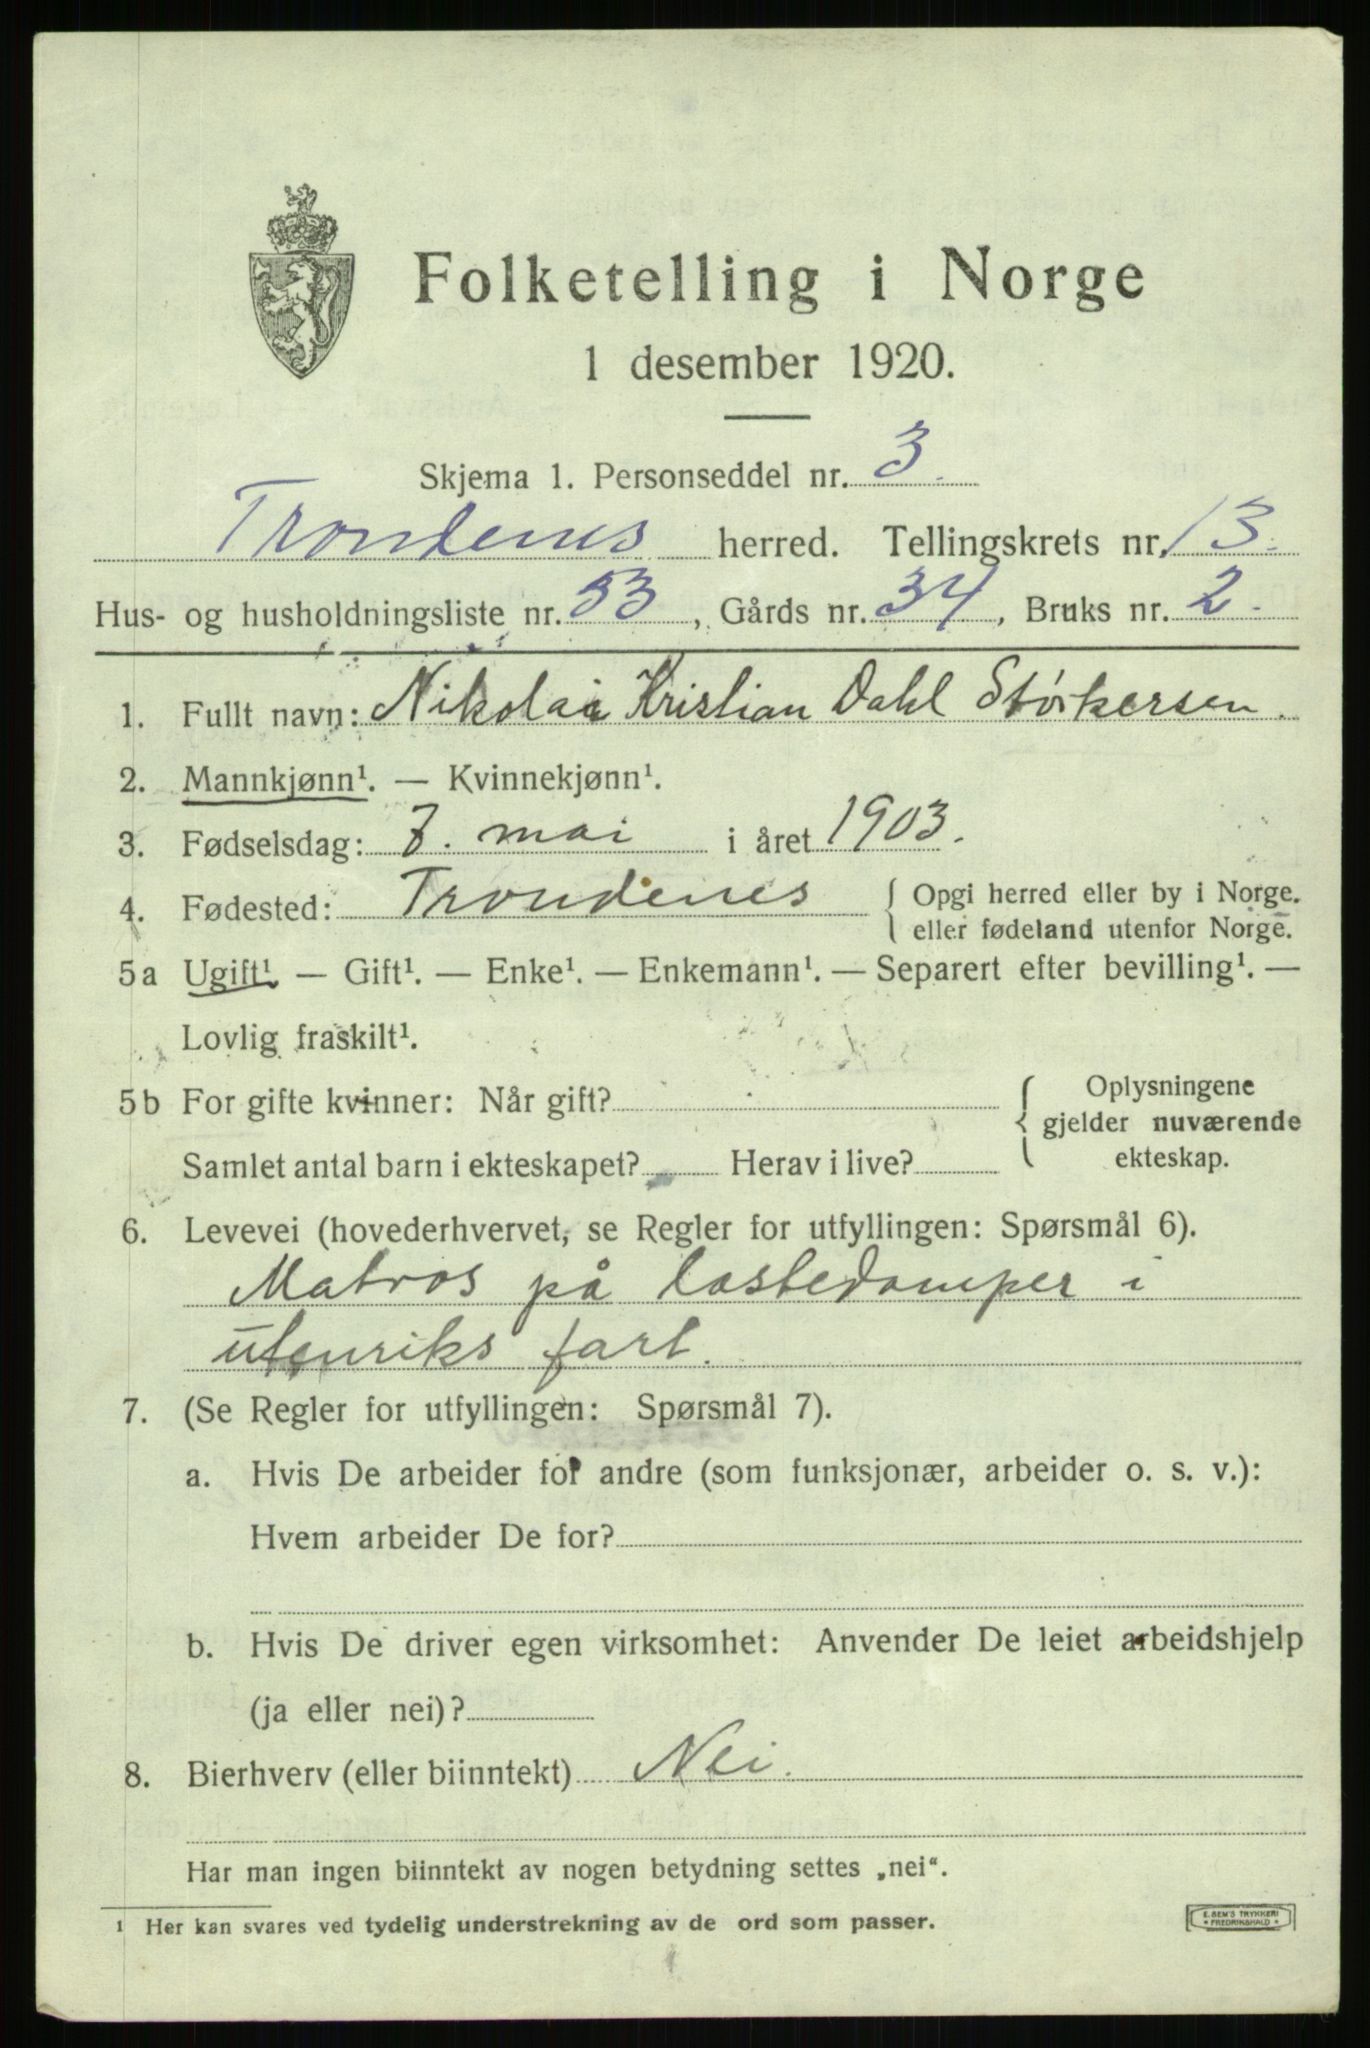 Folketelling i Norge
1 desember 1920.
Skjema 1. Personseddel nr. 3.
Trondenes herred. Tellingskrets nr. 13.
Hus- og husholdningsliste nr. 53, Gårds nr. 34, Bruks nr. 2.
1. Fullt navn: Nikolai Kristian Dahl Størkersen.
2. Mannkjønn¹. — Kvinnekjønn¹.
3. Fødselsdag: 7. mai i året 1903.
4. Fødested: Trondenes { Opgi herred eller by i Norge.
eller fødeland utenfor Norge.
5a Ugift¹. — Gift¹. — Enke¹. — Enkemann¹. — Separert efter bevilling¹. —
Lovlig fraskilt¹.
5b For gifte kvinner: Når gift?
Samlet antal barn i ekteskapet? Herav i live?
{ Oplysningene
gjelder nuværende
ekteskap.
6. Levevei (hovederhvervet, se Regler for utfyllingen: Spørsmål 6).
Matros på lastedamper i
utenriks fart.
7. (Se Regler for utfyllingen: Spørsmål 7).
a. Hvis De arbeider for andre (som funksjonær, arbeider o. s. v.):
Hvem arbeider De for?
b. Hvis De driver egen virksomhet: Anvender De leiet arbeidshjelp
(ja eller nei)?
8. Bierhverv (eller biinntekt) Nei.
Har man ingen biinntekt av nogen betydning settes „nei“.
¹ Her kan svares ved tydelig understrekning av de ord som passer.
E. SEM'S TRYKKERI
• FREDRIKSHALD •